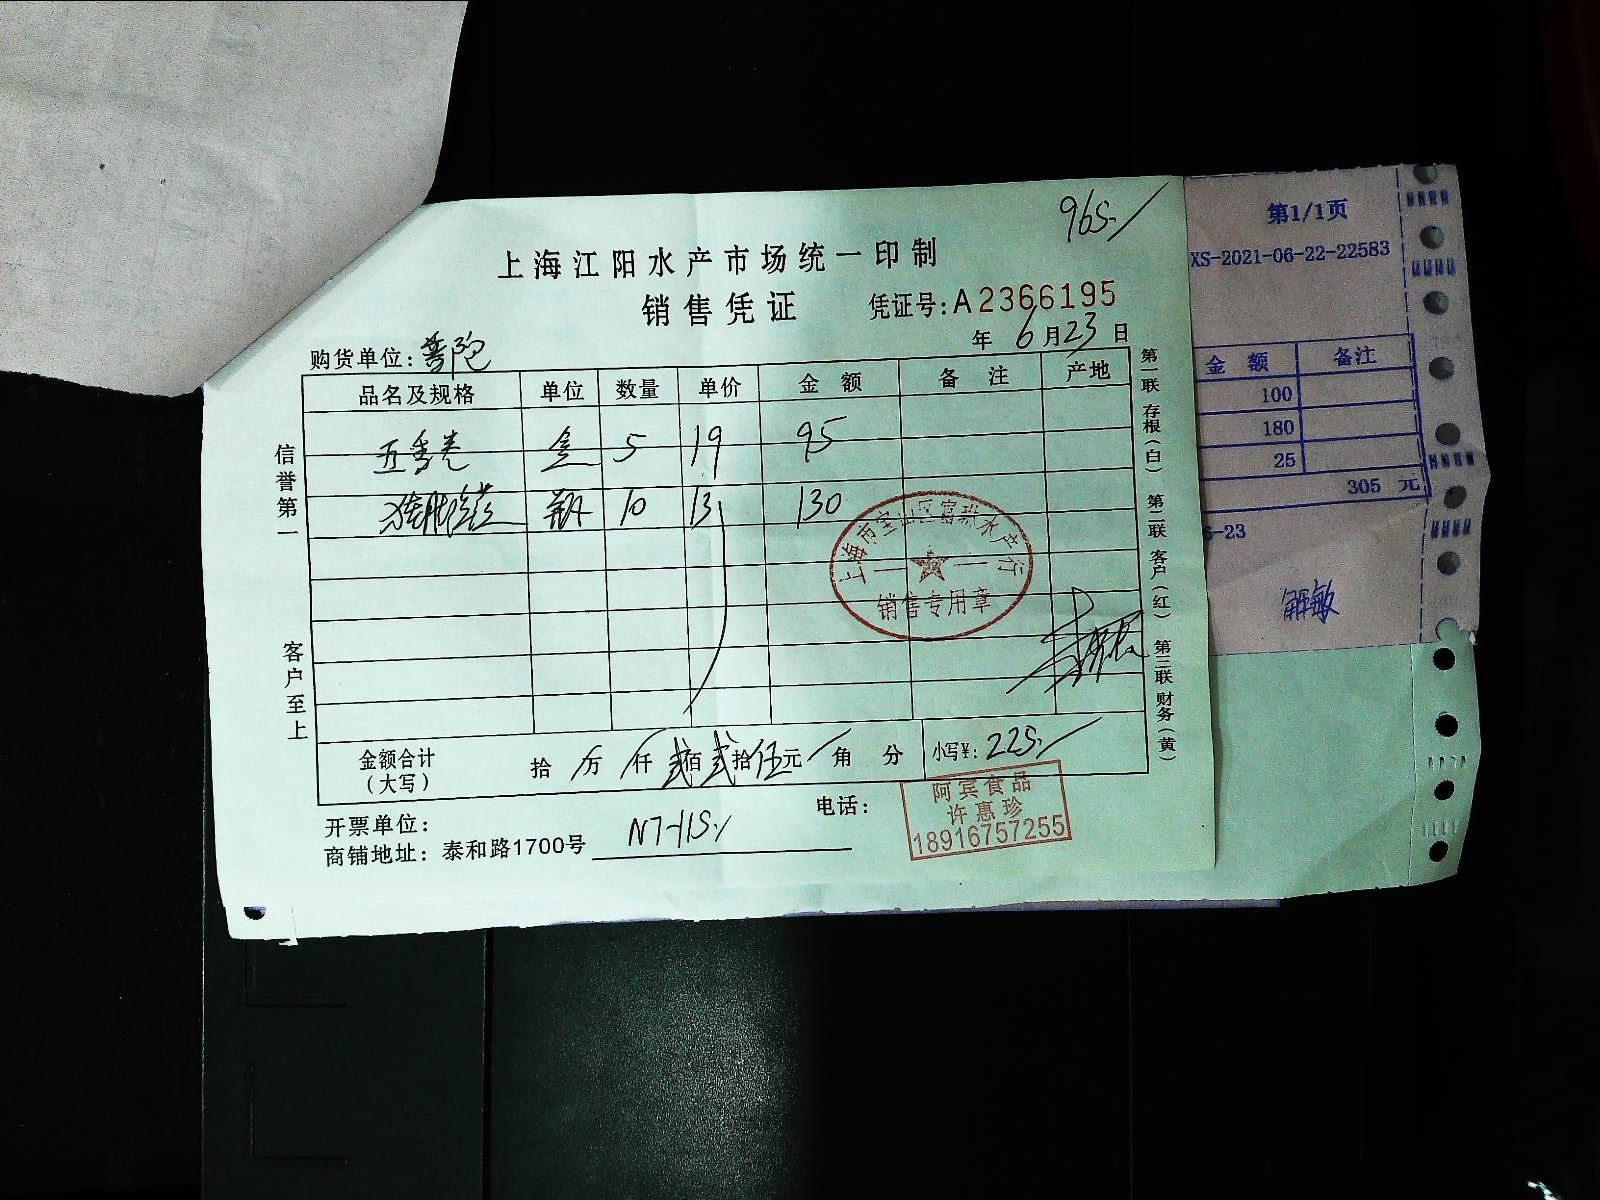 965.
上海江阳水产市场统一印制
销售凭证 凭证号:A2366195
年 6月23日
购货单位:普陀
品名及规格 单位 数量 单价 金额 备注 产地
五香卷 盒 5 19 95
10 13 130
上海市宝山区富 水产行
销售专用章
金额合计(大写) 拾 万 仟 贰佰贰拾伍元 角 分 小写¥:225.
开票单位: 电话:
商铺地址: 泰和路1700号 N7-115.
阿宾食品
许惠珍
18916757255
信誉第一 客户至上
第一联 存根(白) 第二联 客户(红) 第三联 财务(黄)
第1/1页
XS-2021-06-22-22583
金额 备注
100
180
25
305 元
6-23